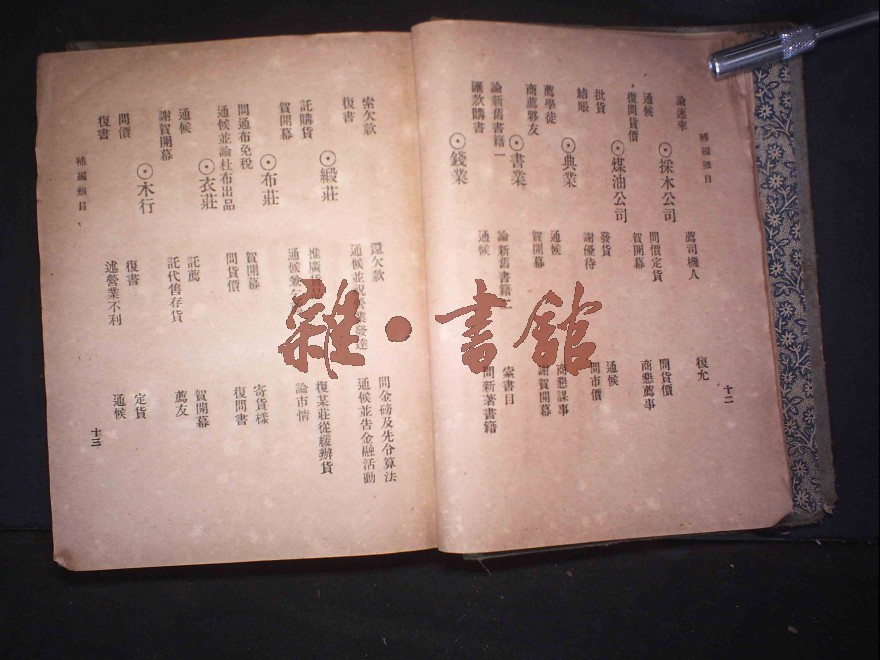 補編細目
十二
論速率
薦司機人
復允
⊙採木公司
通候
問價定貨
問貨價
復問貨價
賀開幕
商懇薦事
⊙煤油公司
批貨
發貨
通候
結賬
謝優待
問市價
⊙典業
薦學徒
通候
商懇謀事
商薦夥友
賀開幕
謝賀開幕
⊙書業
論新舊書籍一
論新舊書籍二
索書目
匯款購書
通候
問新著書籍
⊙錢業
索欠款
還欠款
問金磅及先令算法
復書
通候並祝營業發達
通候並告金融活動
⊙緞莊
託購貨
推廣貨
復某莊從緩辦貨
賀開幕
通候兼
論市情
⊙布莊
問通布免稅
賀開幕
寄貨樣
通候並論杜布出品
問貨價
復問書
⊙衣莊
通候
託薦
賀開幕
謝賀開幕
託代售存貨
薦友
⊙木行
問價
復書
定貨
復書
述營業不利
通候
補編細目
十三
雜·書館